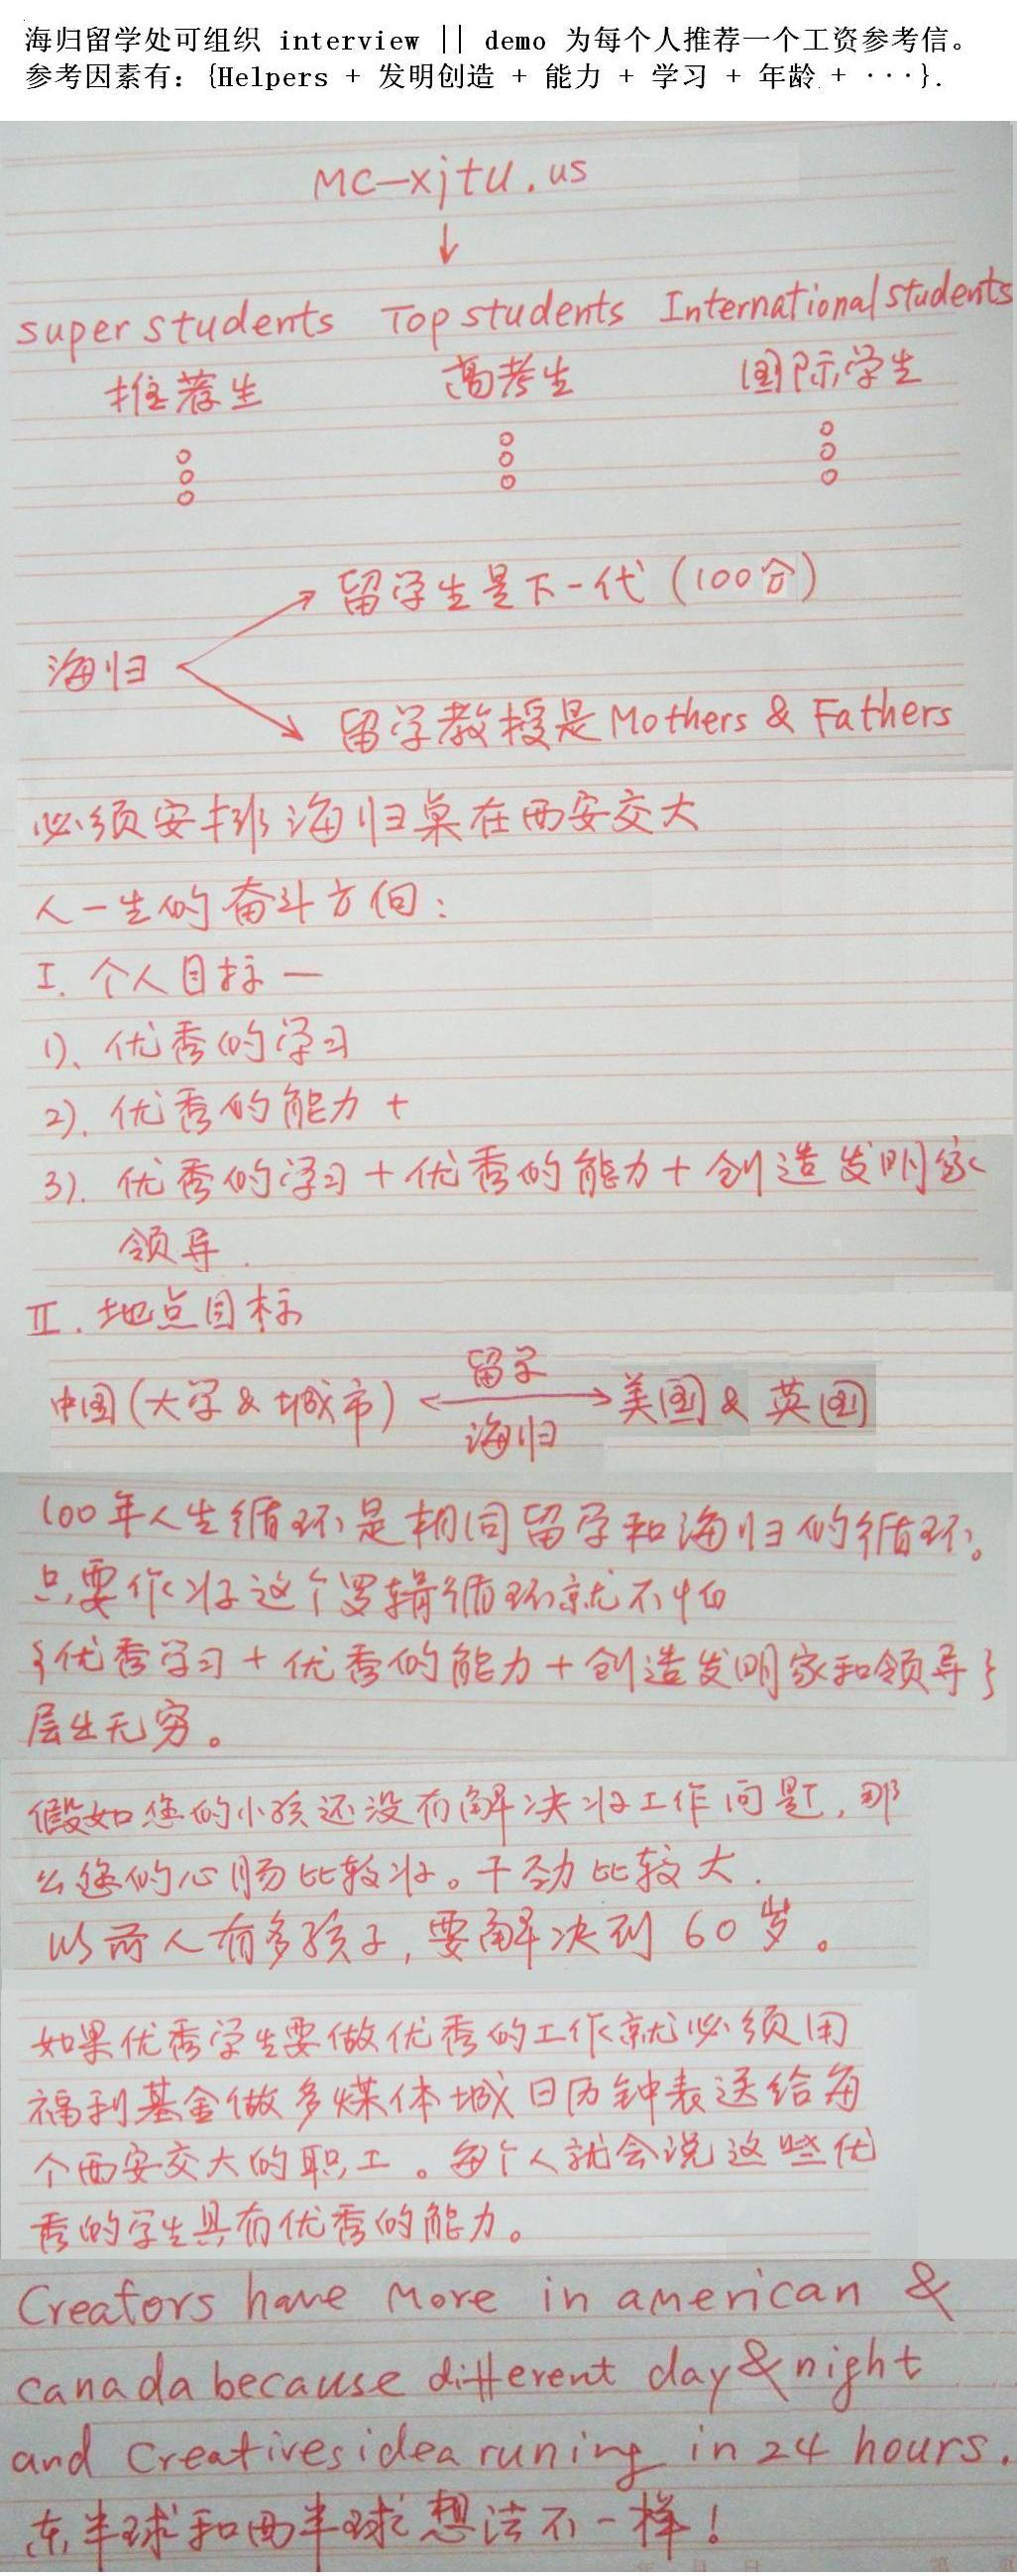 海归留学处可组织 interview || demo 为每个人推荐一个工资参考信。
参考因素有: {Helpers + 发明创造 + 能力 + 学习 + 年龄 + ···}.
MC-xjtu.us
↓
super students Top students International students
推荐生 高考生 国际学生
留学生是下一代 (100分)
海归
留学教授是 Mothers & Fathers
必须安排海归桌在西安交大
人一生的奋斗方向:
I. 个人目标 —
1). 优秀的学习
2). 优秀的能力 +
3). 优秀的学习 + 优秀的能力 + 创造发明家
领导.
II. 地点目标
留学
中国(大学 & 城市) ⟷ 美国 & 英国
海归
100年人生循环是相同留学和海归的循环。
只要作好这个逻辑循环就不怕
{优秀学习 + 优秀的能力 + 创造发明家和领导}
层出无穷。
假如您的小孩还没有解决好工作问题, 那
么您的心肠比较好。干劲比较大.
以前人有多孩子, 要解决到 60 岁。
如果优秀学生要做优秀的工作就必须用
福利基金做多媒体城日历钟表送给每
个西安交大的职工。每个人就会说这些优
秀的学生具有优秀的能力。
Creators have More in american &
canada because different day & night
and Creatives idea runing in 24 hours.
东半球和西半球想法不一样!